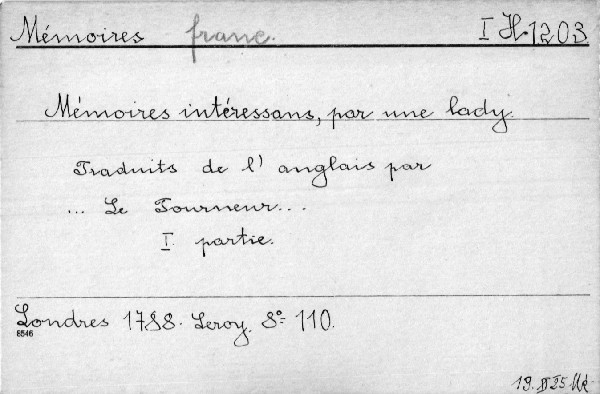 Mémoires franc. I H 1203
Mémoires intéressans, par une lady.
Traduits de l' anglais par
... Le Tourneur...
I. partie.
Londres 1788. Leroy. 8° 110.
8546
19. II 25